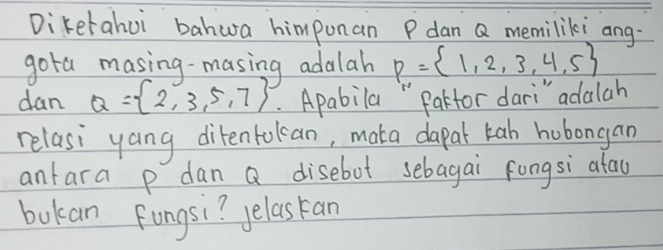 Diketahui bahwa himpunan P dan Q memiliki ang-
gota masing-masing adalah P = {1, 2, 3, 4, 5}
dan Q = {2, 3, 5, 7}. Apabila "faktor dari" adalah
relasi yang ditentukan, maka dapat kah hubongan
antara P dan Q disebut sebagai fungsi atau
bukan fungsi? jelaskan